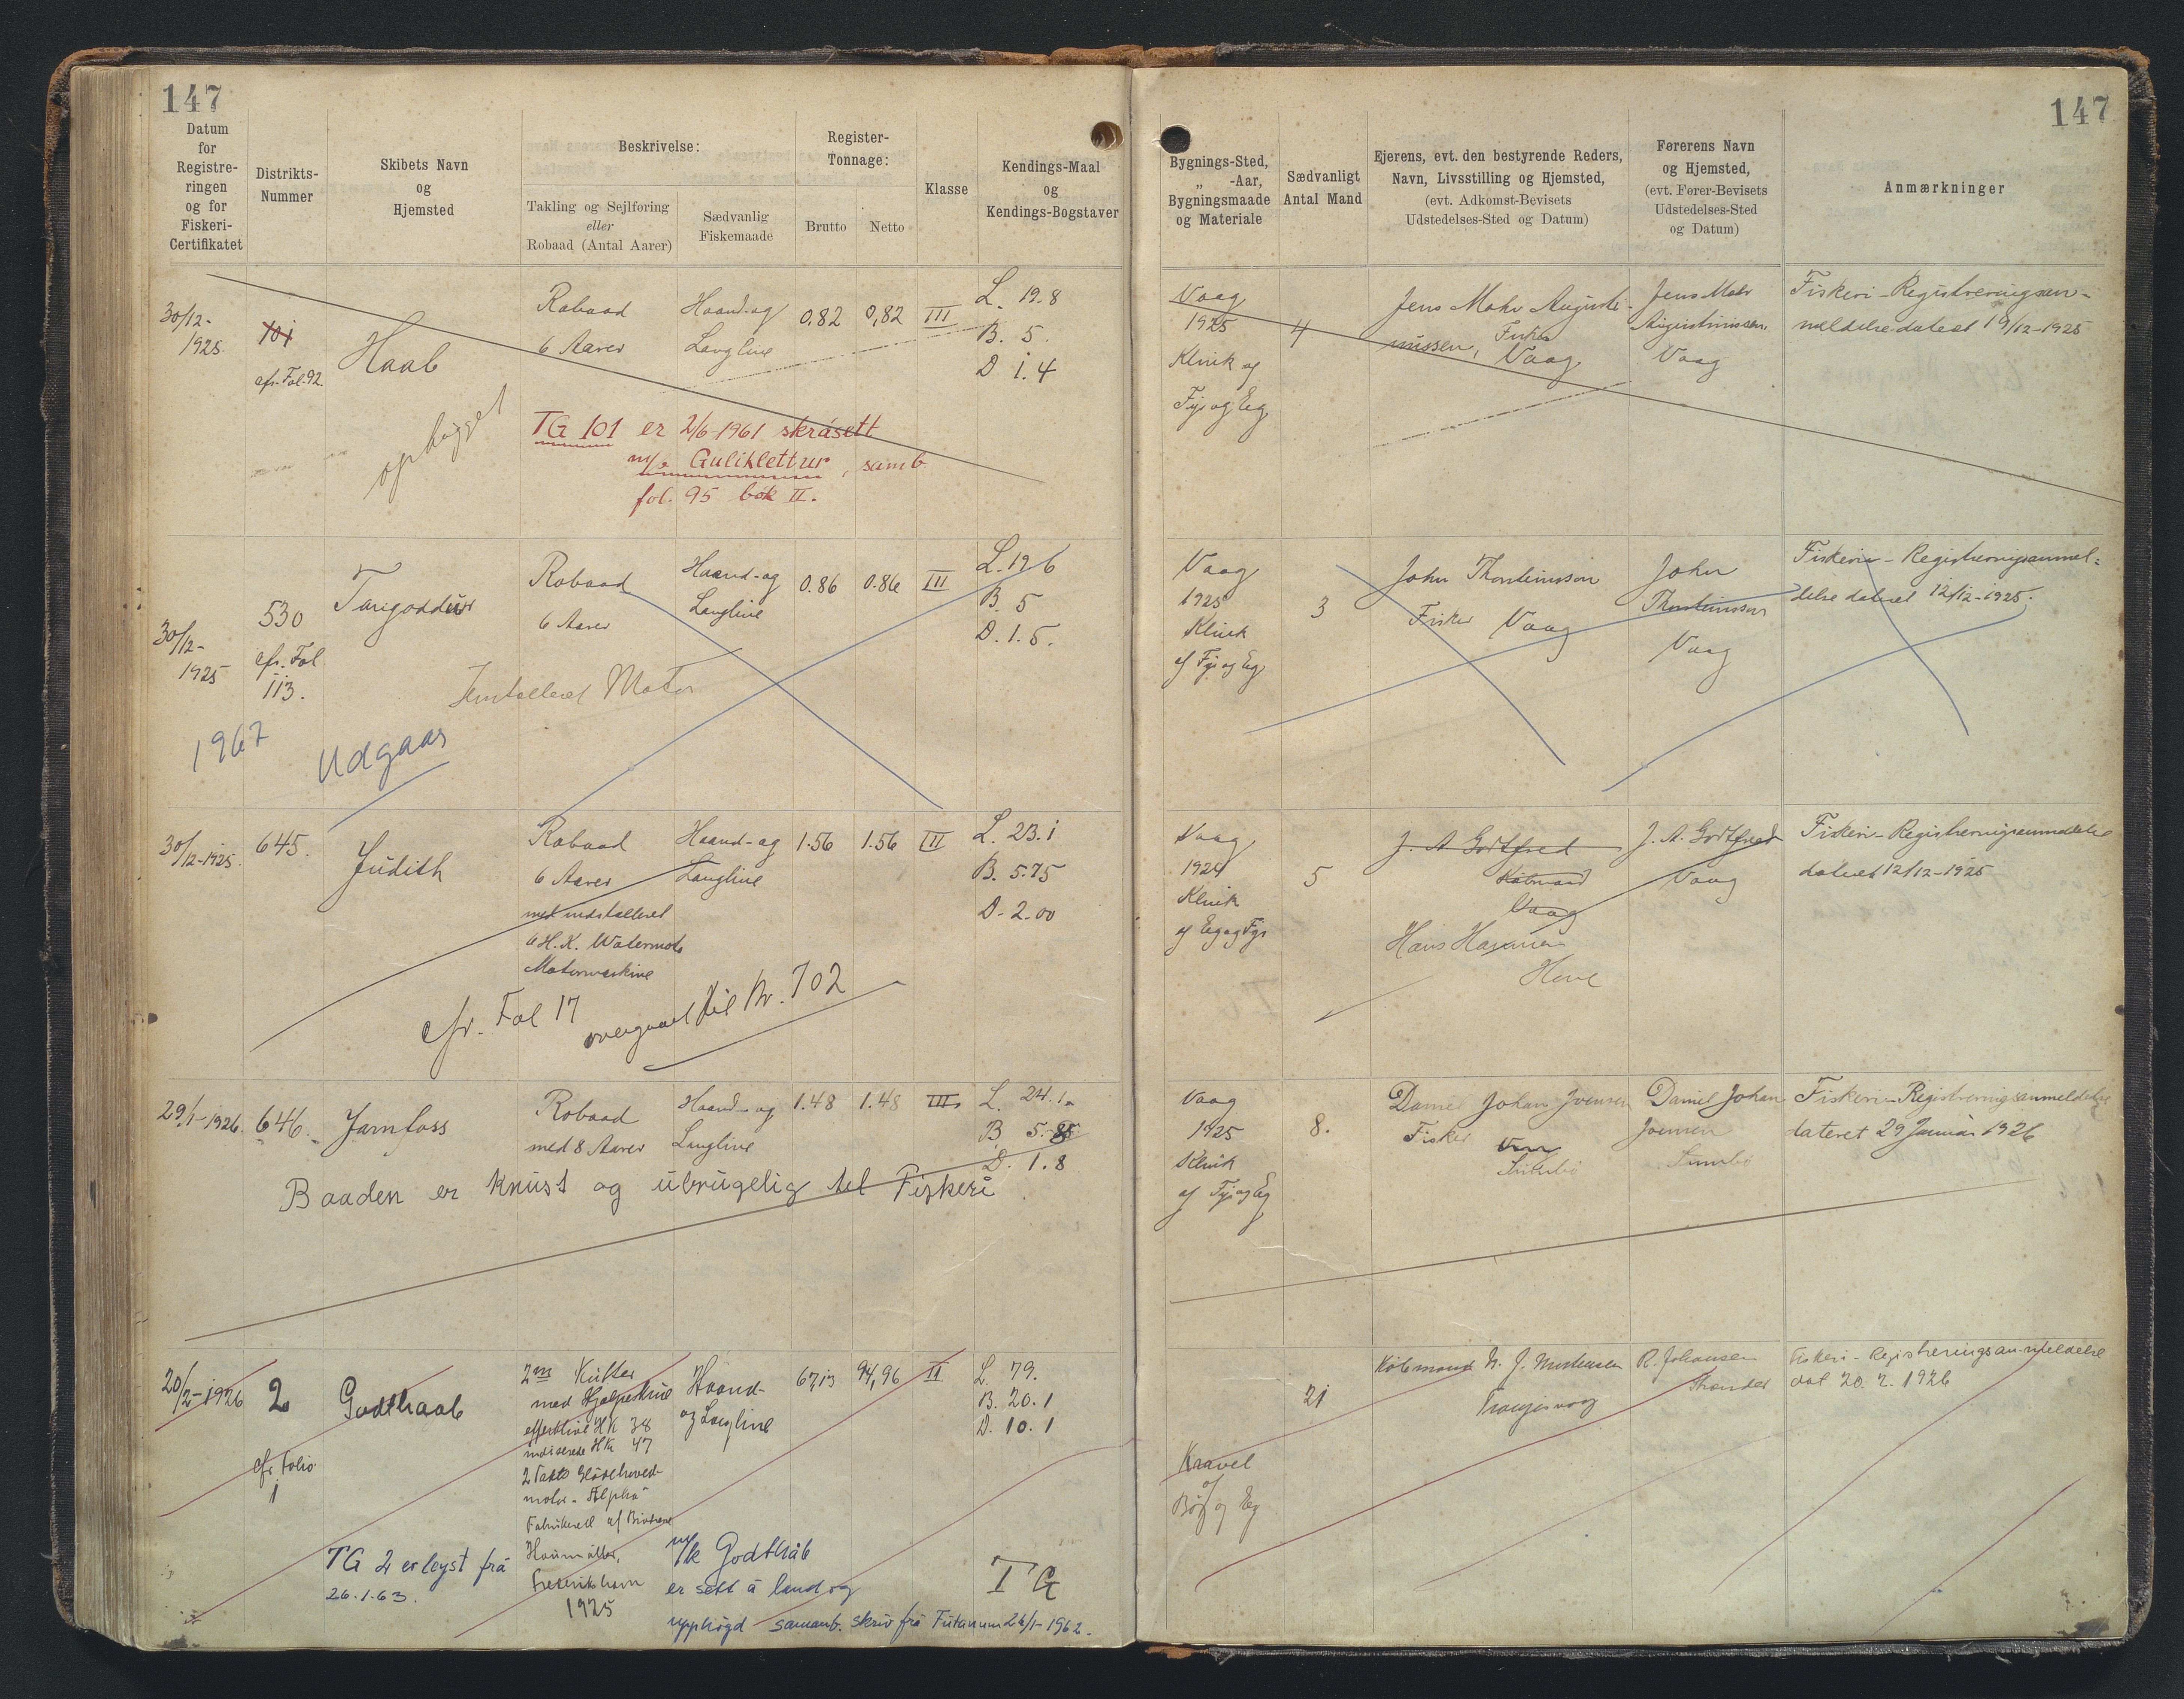 147
147
Datum
for
Registre-
ringen
og for
Fiskeri-
Certifikatet
Distrikts-
Nummer
Skibets Navn
og
Hjemsted
Beskrivelse:
Takling og Sejlføring
eller
Robaad (Antal Aarer)
Sædvanlig
Fiskemaade
Register-
Tonnage:
Brutto
Netto
Klasse
Kendings-Maal
og
Kendings-Bogstaver
Bygnings-Sted,
„ -Aar,
Bygningsmaade
og Materiale
Sædvanligt
Antal Mand
Ejerens, evt. den bestyrende Reders,
Navn, Livsstilling og Hjemsted,
(evt. Adkomst-Bevisets
Udstedelses-Sted og Datum)
Førerens Navn
og Hjemsted,
(evt. Fører-Bevisets
Udstedelses-Sted
og Datum)
Anmærkninger
30/12-
1925.
101
cfr. Fol. 92
Haab
ophugget
Robaad
6 Aarer
Haand-og
Langline
0.82
0,82
III
L. 19.8
B. 5.
D 1.4
TG 101 er 2/6-1961 skrásett
m/b Guliklettur, samb.
fol. 95 bók II.
Vaag
1925
Klink af
Fyr og Eg
4
Jens Mohr Augusti-
nussen, Fisker
Vaag
Jens Mohr
Augustinussen
Vaag
Fiskeri-Registreringsan-
meldelse dateret 19/12-1925
30/12-
1925
530
cfr. Fol
113.
Robaad
6 Aarer
Haand-og
Langline
0.86
0.86
III
L. 19 6
B. 5
D. 1.5.
Motor
1967
Udgaar
Vaag
1925
Klink
af Fyr og Eg
3
John Thorsteinsson
Fisker Vaag
John
Thorsteinsson
Vaag
Fiskeri-Registreringsanmel-
delse dateret 12/12-1925.
30/12-1925.
645.
Judith
Robaad
6 Aarer
med indstalleret
6 H.K. Watermota
Motormaskine
Haand-og
Langline
1.56
1.56
III
L. 23.1
B. 5.75
D. 2.00
cfr. Fol 17
overgaaet til Nr. 702
Vaag
1924
Klink
af Eg og Fyr
5
J. A Godtfred
Købmand
Vaag
Hans
Hove
J. A. Godtfred
Vaag
Fiskeri-Registreringsanmeldelse
dateret 12/12-1925
29/1-1926.
646.
Jarnfoss
Robaad
med 8 Aarer
Haand-og
Langline
1.48
1.48
III
L. 24.1
B. 5.85
D. 1.8
Baaden er knust og ubrugelig til Fiskeri
Vaag
1925
Klink
af Fyr og Eg
8.
Daniel Johan Joensen
Fisker
Sumbø
Daniel Johan
Joensen
Sumbø
Fiskeri-Registreringsanmeldelse
dateret 29 Januar 1926
20/2-1926
2
cfr. Folio
1
Godthaab
2m Kutter
med Hjælpeskrue
effektive HK 38
indicerede HK 47
2 Takts Glødehoved-
motor - Alpha
Fabrikeret af Brødrene
Houmøller,
Frederikshavn
1925
Haand-
og Langline
67,13
94,96
II
L. 79.
B. 20.1
D. 10.1
TG 2 er leyst frá
26.1.63.
m/k Godthåb
er sett á land og
upphøgd samanb. skriv frá Fútanum 26/1-1962.
TG
Kravel
af
Bøg og Eg
21
Købmand N. J. Mortensen
Trangisvaag
R. Johansen
Fiskeri-Registreringsanmeldelse
dat 20. 2. 1926